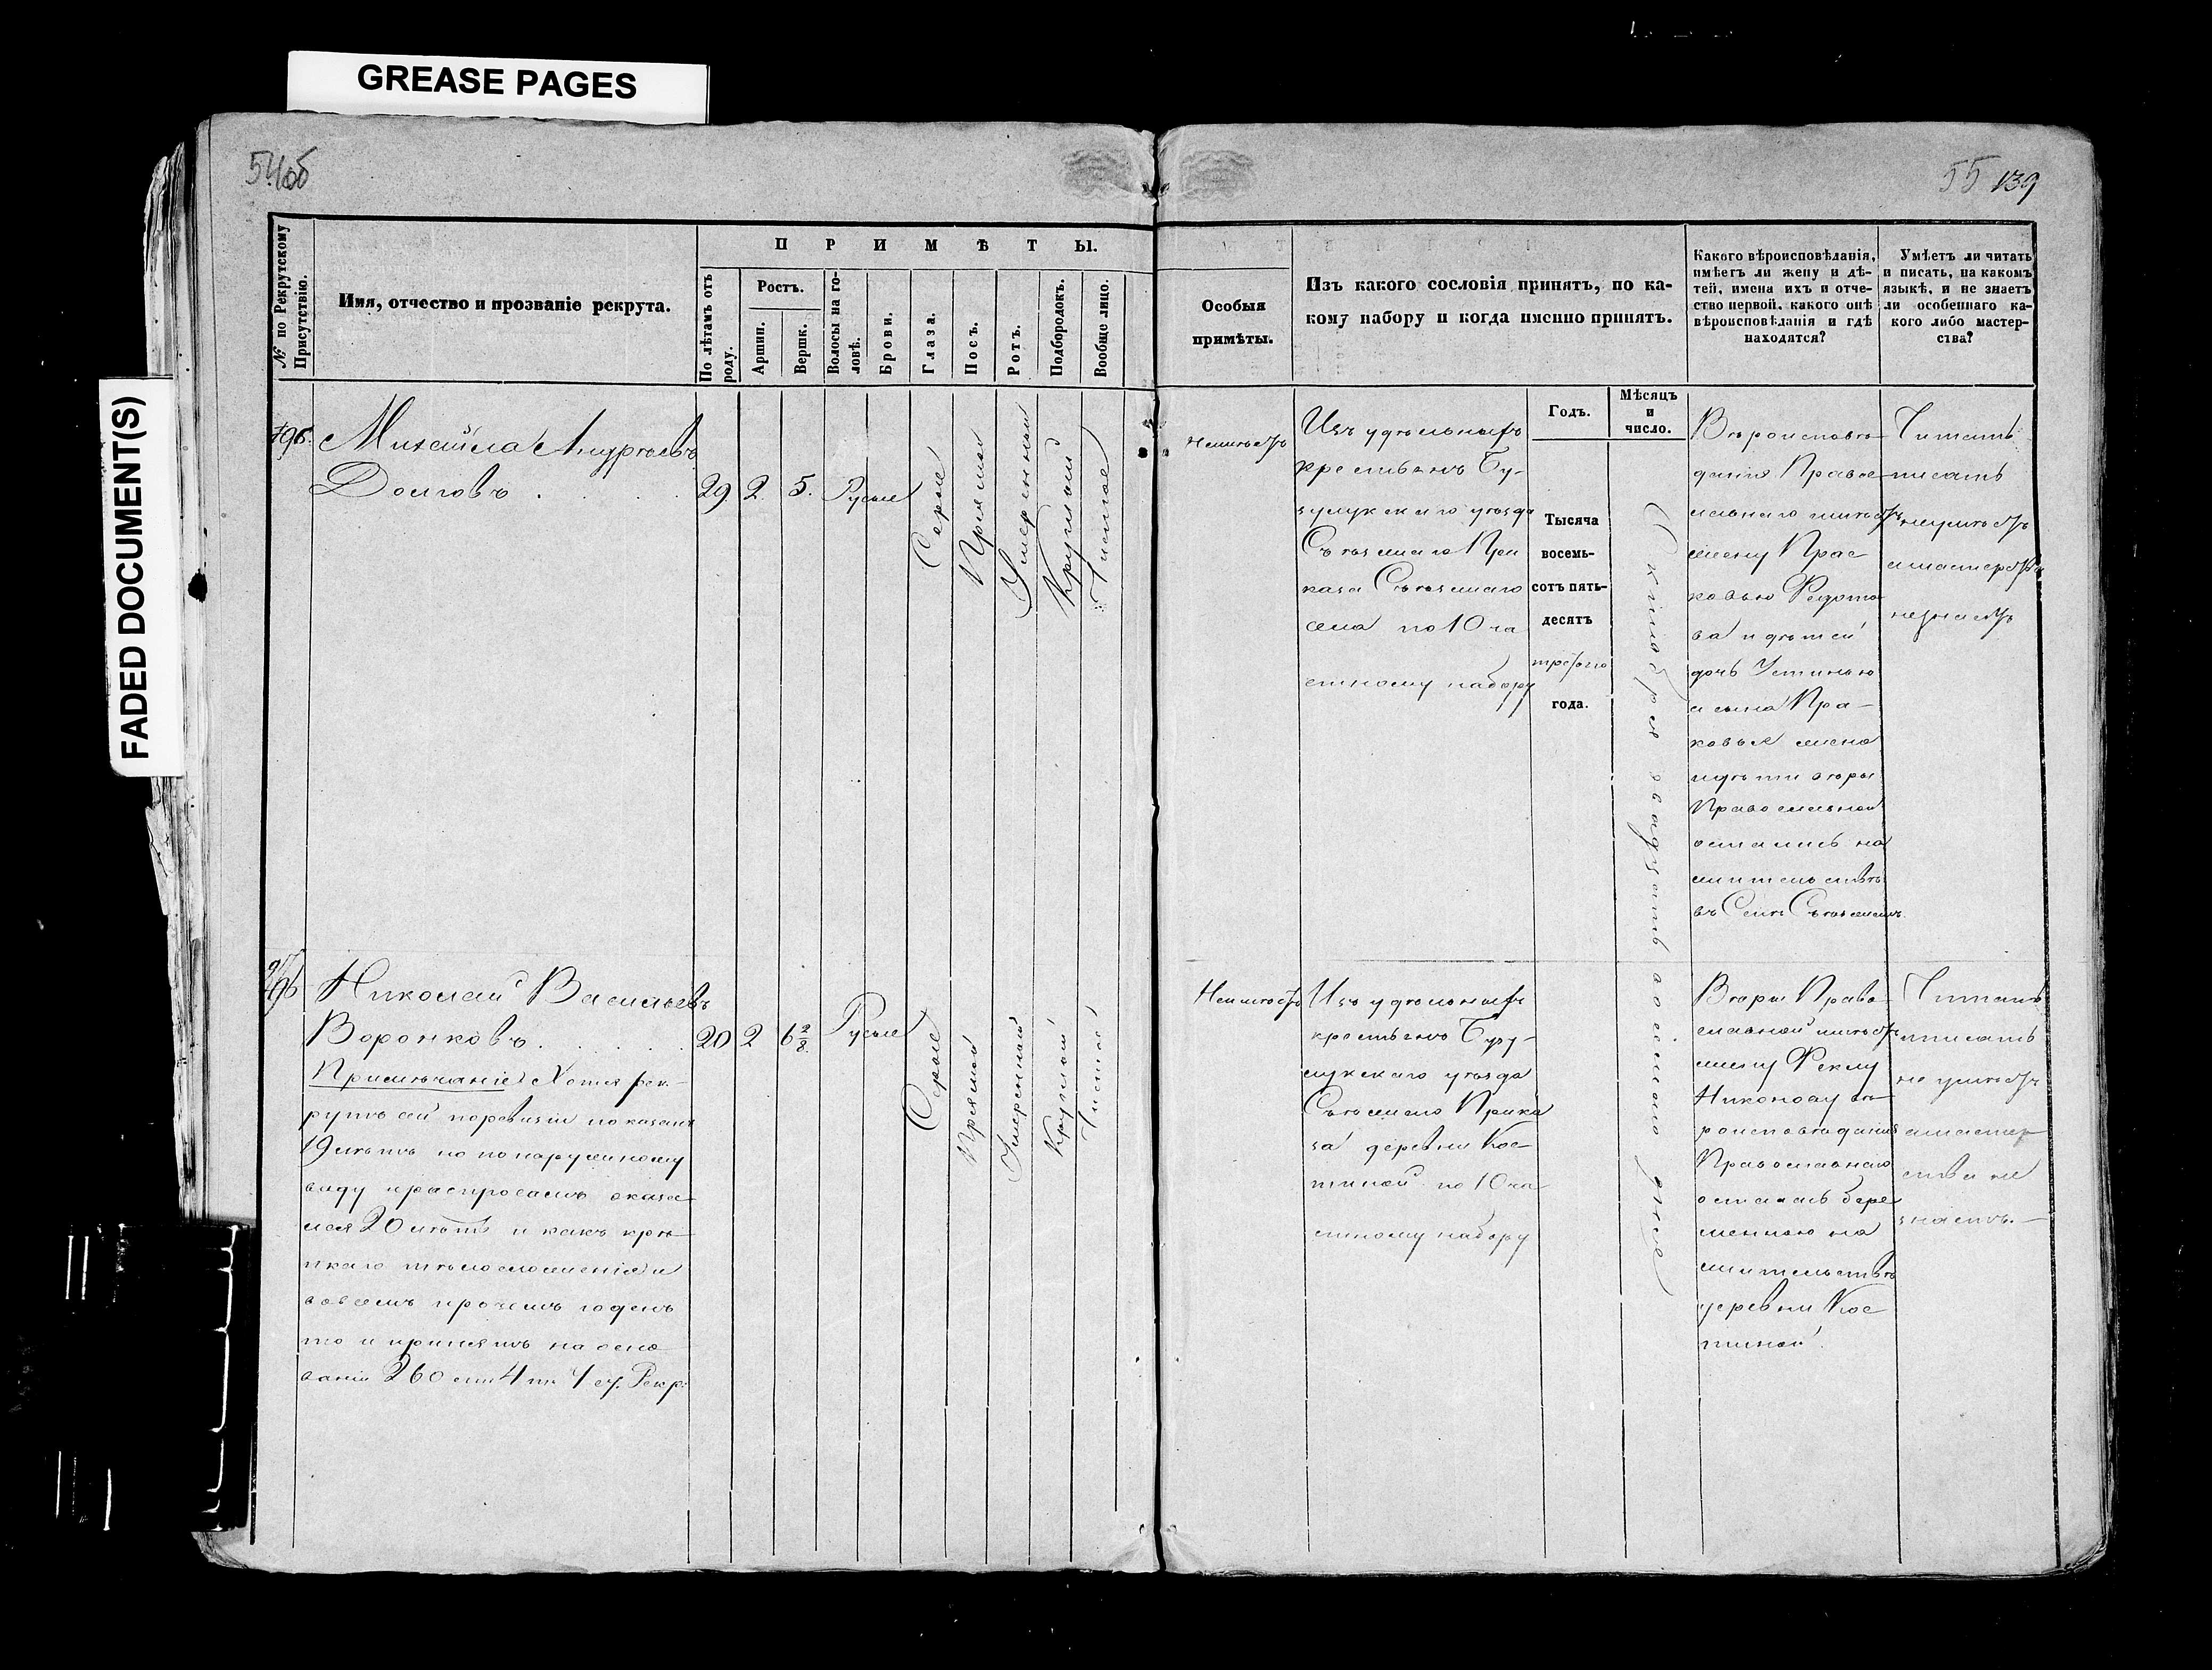 GREASE PAGES
FADED DOCUMENT(S)
54об
55 139
№ по Рекрутскому Присутствію.
Имя, отчество и прозваніе рекрута.
ПРИМѢТЫ.
По лѣтамъ отъ роду.
Ростъ.
Аршин.
Вершк.
Волосы на головѣ.
Брови.
Глаза.
Носъ.
Ротъ.
Подбородокъ.
Вообще лицо.
Особыя
примѣты.
Изъ какого сословія принятъ, по ка-
кому набору и когда именно принятъ.
Какого вѣроисповѣданія,
имѣетъ ли жену и дѣ-
тей, имена ихъ и отче-
ство первой, какого онѣ
вѣроисповѣданія и гдѣ
находятся?
Умѣетъ ли читать
и писать, на какомъ
языкѣ, и не знаетъ
ли особеннаго ка-
кого либо мастер-
ства?
Годъ.
Мѣсяцъ
и
число.
Михайла Андреевъ
Долговъ
29. 2. 5. Русые
Сѣрые
Прямой
Умеренный
Круглый
Чистое
Неимѣетъ
Изъ удѣльныхъ
крестьянъ Бу-
зулукскаго уѣзда
Съѣзжаго При
каза Съѣзжаго
села по 10 ча
стному набору
Тысяча
восемь-
сотъ пять-
десятъ
третьяго
года.
Октября двадцать осьмаго дня
Вѣроисповѣ-
данія Правос-
лавнаго имѣетъ
жену Прас
ковью Федото
ва и дѣтей
дочь Устинью
и сына Пра-
ковья жена
и дѣти вѣры
Православной
остались на
жительствѣ
въ Селѣ Съѣзжемъ.
Читать
писать
неумѣетъ
а мастерства
незнаетъ
Николай Васильевъ
Воронковъ
20 2 6 2/8 Русые
Сѣрые
Прямой
Умеренный
Круглый
Чистое
Примѣчаніе Хотя рек-
рутъ сей поревизіи показанъ
19 лѣтъ но по наружному
виду и распросамъ оказа-
лся 20 лѣтъ и какъ крѣ-
пкаго тѣлосложенія и
вовсемъ прочемъ годенъ
то и принятъ на осно
ваніи 260 ст 4 пн 1 су. Рекр:
Неимѣетъ
Изъ удѣльныхъ
крестьянъ Бузу-
лукскаго уѣзда
Съѣзжаго Прика
за деревни Кос-
тиной по 10 ча
стному набору
Вѣры Право
славной имѣетъ
жену Феклу
Никонову вѣ-
роисповѣданія
Православнаго
осталась бере
менною на
жительствѣ
деревни Кос
тиной.
Читать
и писать
не умѣетъ
а мастер
ства не
знаетъ.